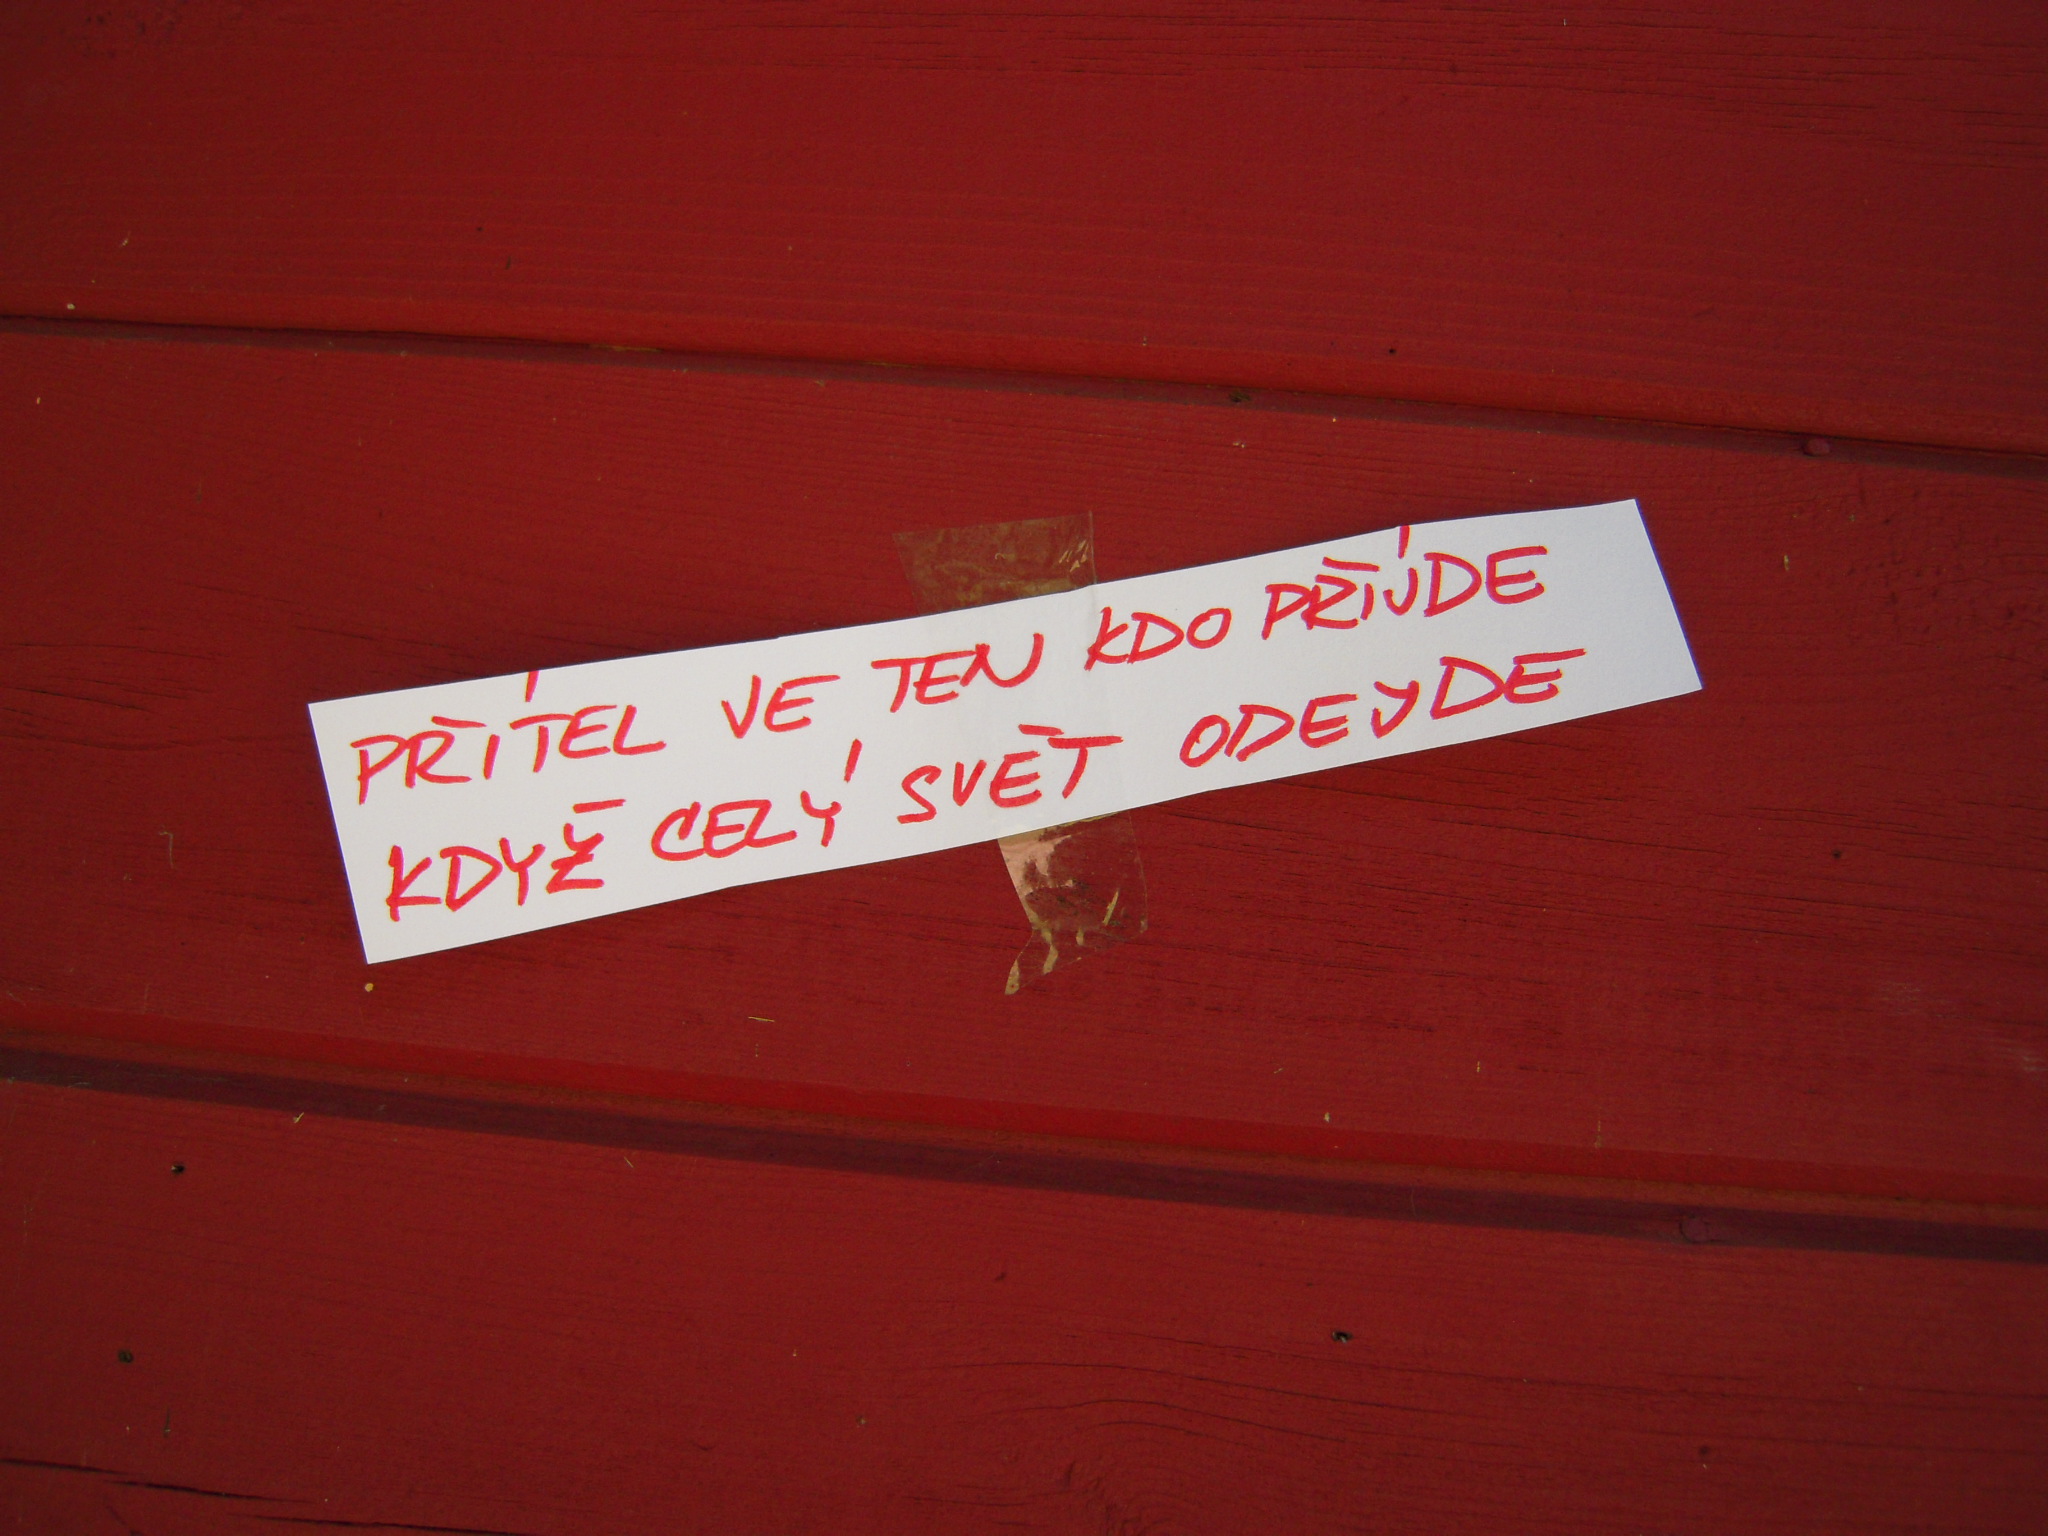 PŘÍTEL VE TEN KDO PŘÍJDE
KDYŽ CELÝ SVĚT ODEJDE